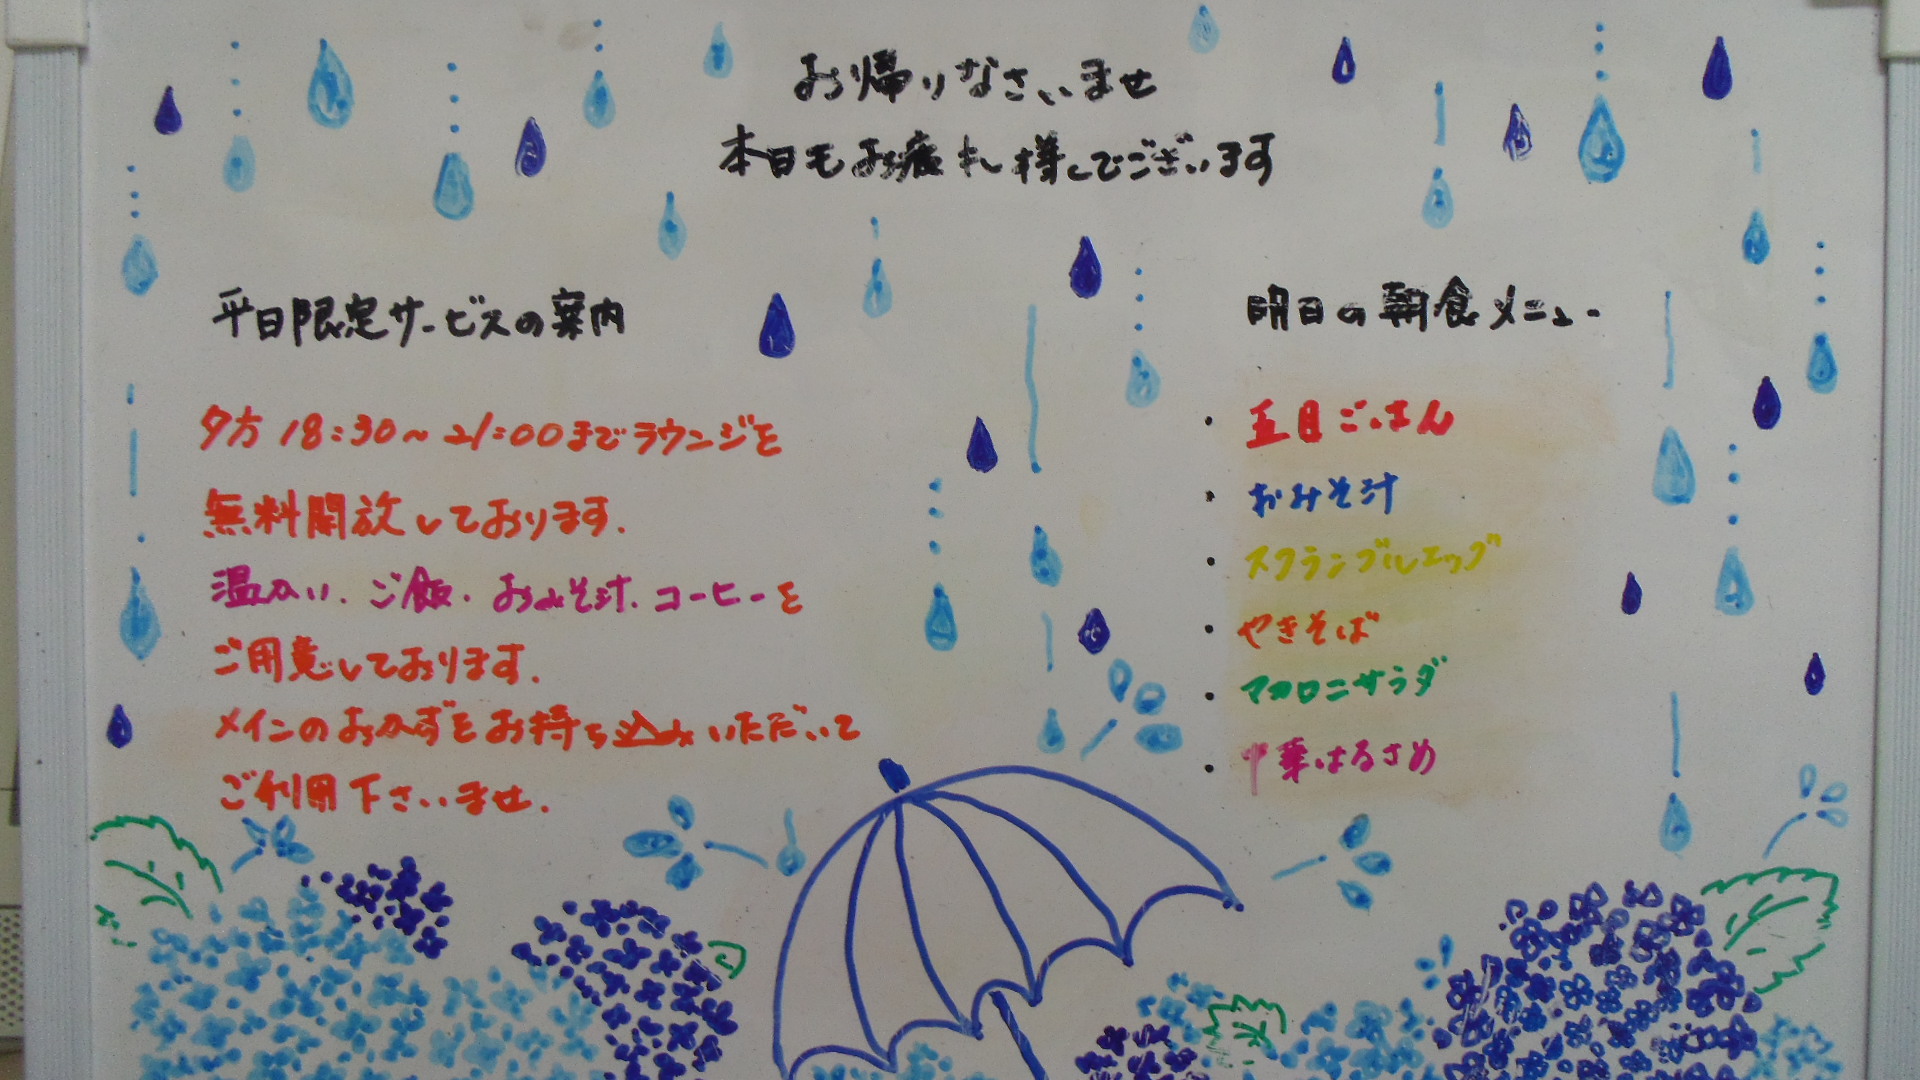 お帰りなさいませ
本日もお疲れ様でございます
平日限定サービスの案内
夕方18:30~21:00までラウンジを
無料開放しております.
温かい.ご飯.おみそ汁.コーヒーを
ご用意しております.
メインのおかずをお持ち込みいただいて
ご利用下さいませ.
明日の朝食メニュー
・五目ごはん
・おみそ汁
・スクランブルエッグ
・やきそば
・マカロニサラダ
・中華はるさめ